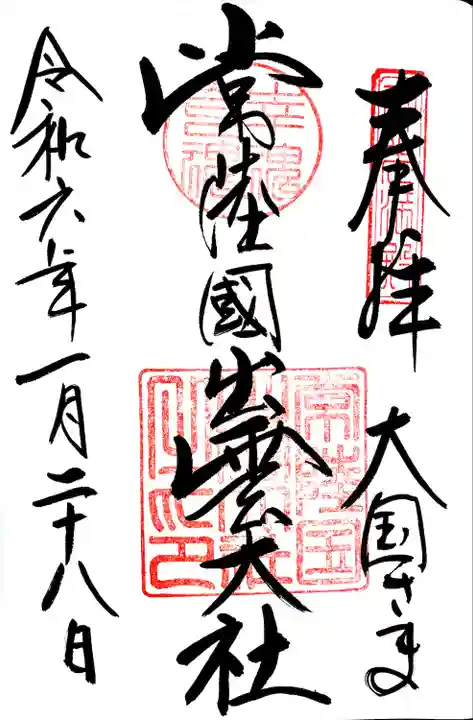 奉拝 大国さま
常陸國出雲大社
令和六年一月二十八日